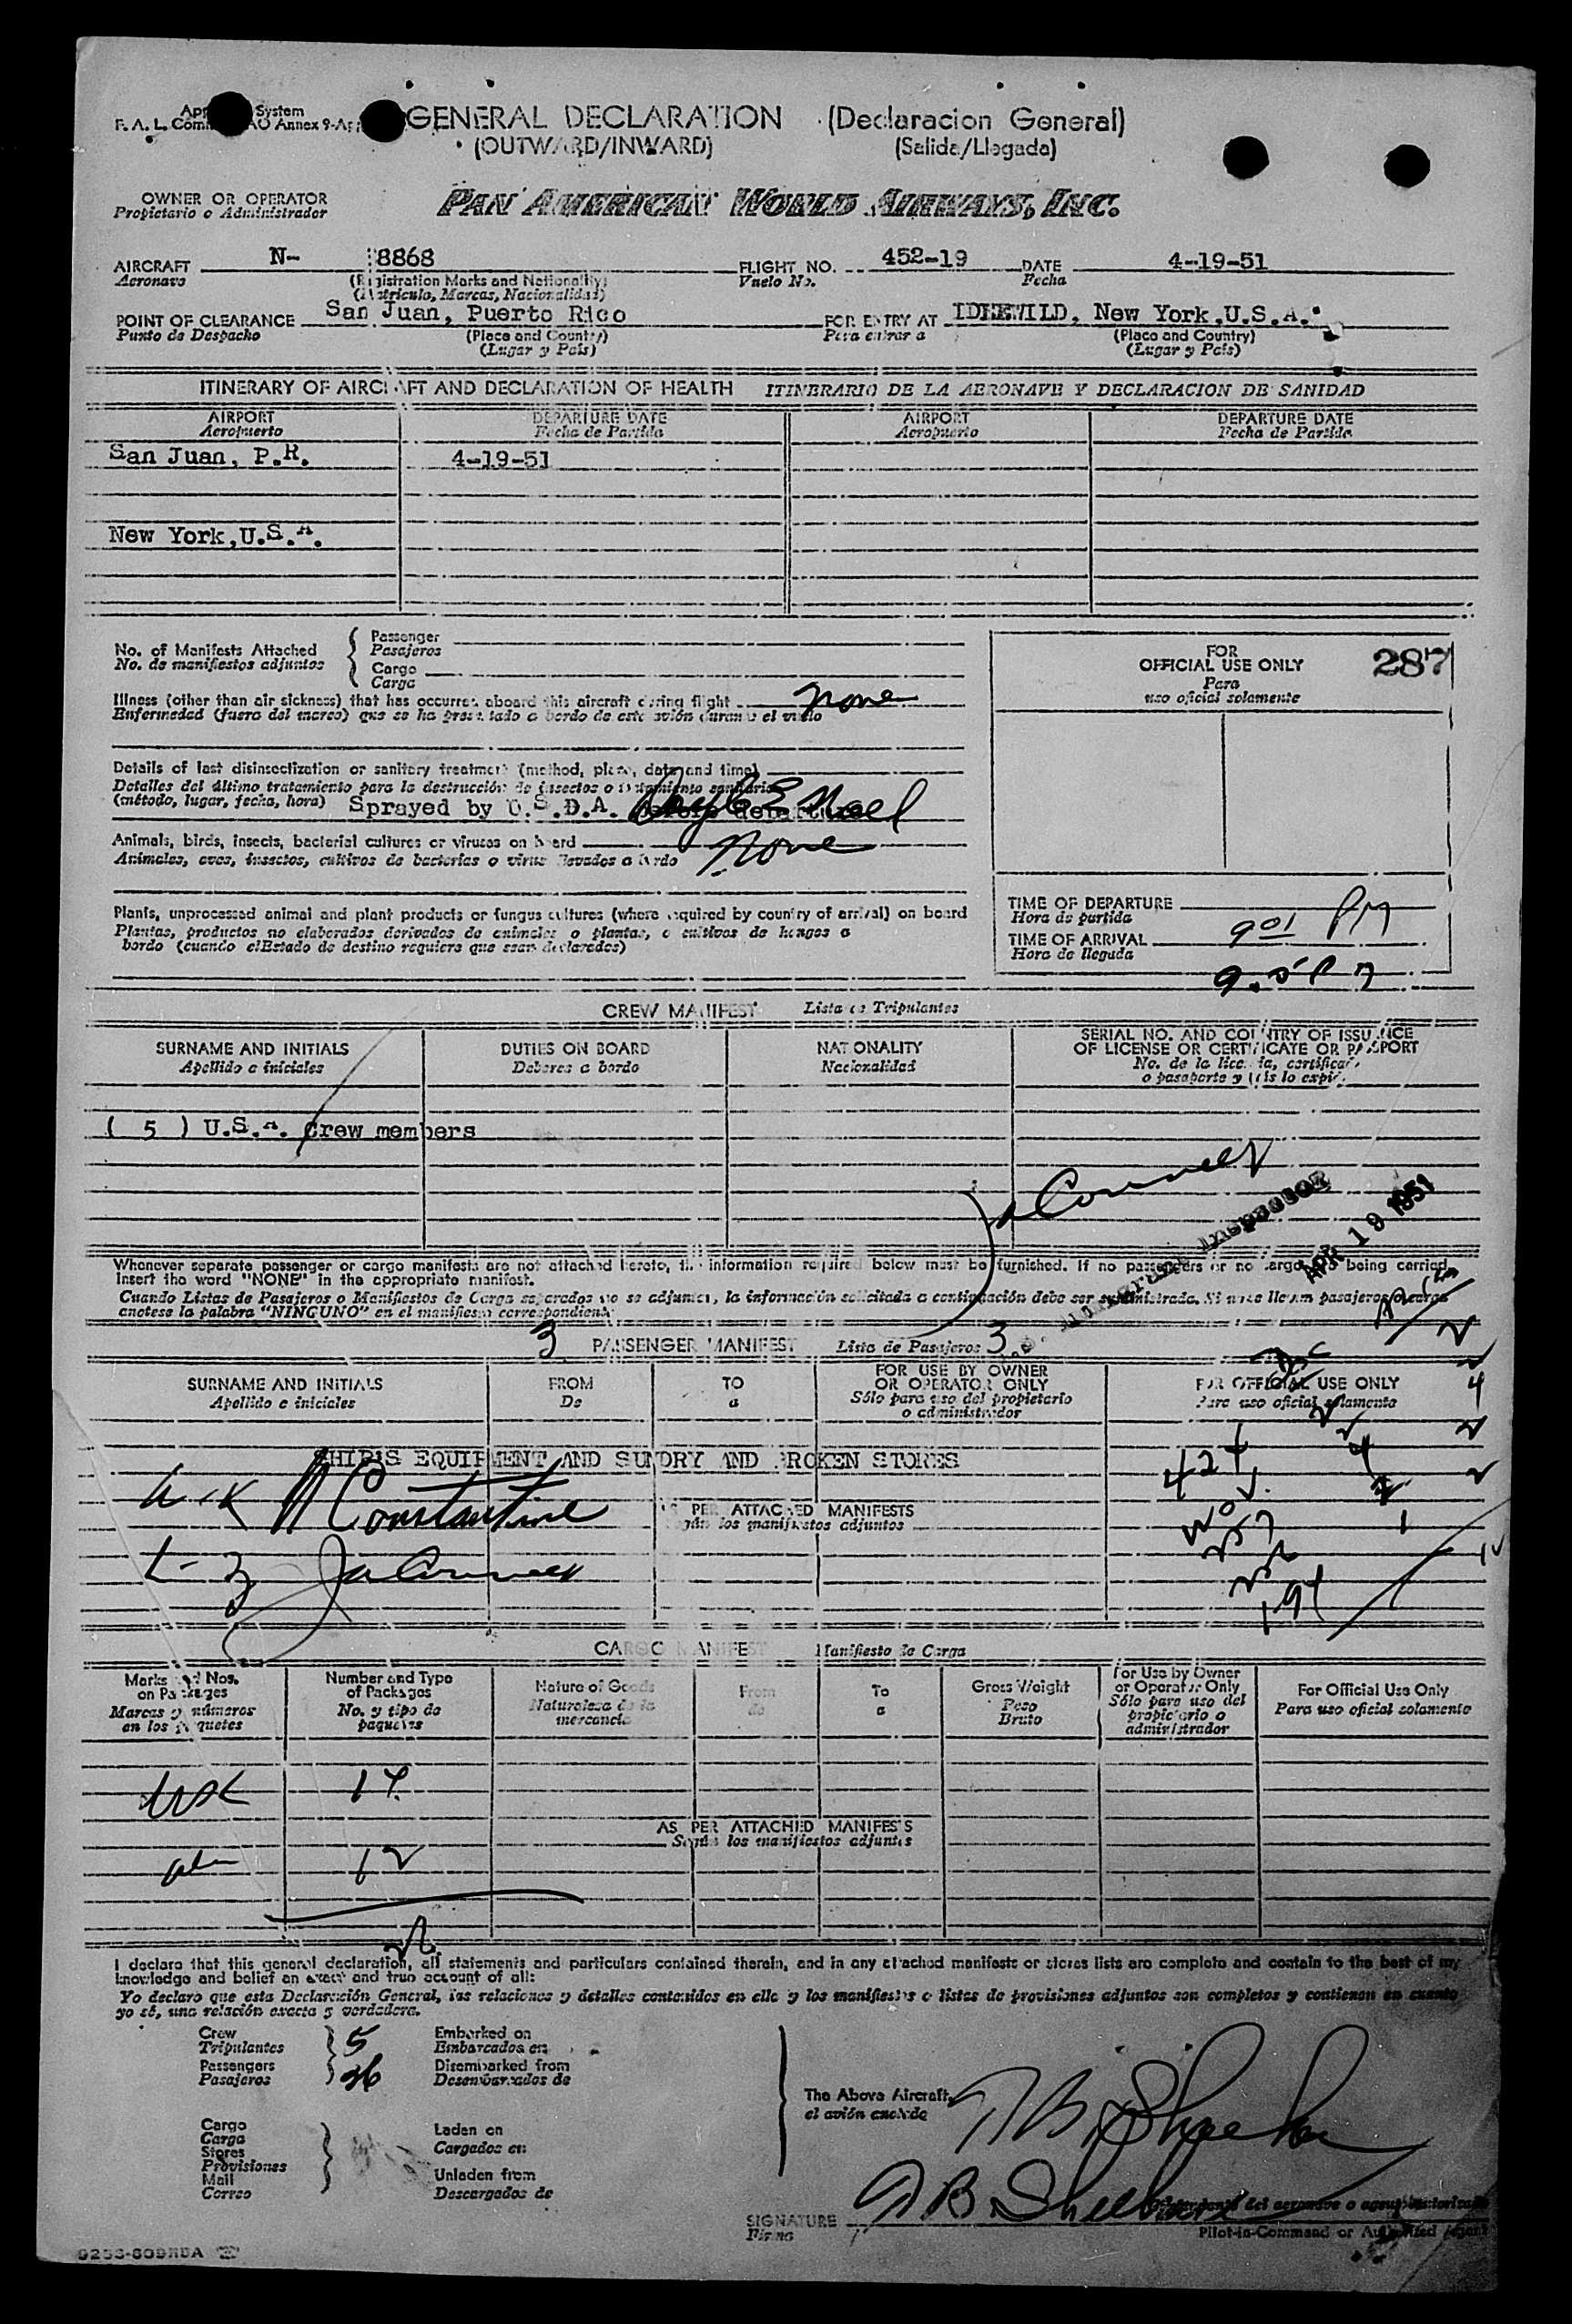 GENERAL DECLARATION (Declaracion General)
(OUTWARD/INWARD) (Salida/Llegada)
OWNER OR OPERATOR
Propietario o Administrador
PAN AMERICAN WORLD AIRWAYS, INC.
AIRCRAFT N- 8868 FLIGHT NO. 452-19 DATE 4-19-51
Aeronave (Registration Marks and Nationality) Vuelo No. Fecha
(Matricula, Marcas, Nacionalidad)
POINT OF CLEARANCE San Juan, Puerto Rico FOR ENTRY AT IDLEWILD, New York,U.S.A.
Punto de Despacho (Place and Country) Para entrar a (Place and Country)
(Lugar y País) (Lugar y País)
ITINERARY OF AIRCRAFT AND DECLARATION OF HEALTH ITINERARIO DE LA AERONAVE Y DECLARACION DE SANIDAD
AIRPORT DEPARTURE DATE AIRPORT DEPARTURE DATE
Aeropuerto Fecha de Partida Aeropuerto Fecha de Partida
San Juan, P.R. 4-19-51
New York,U.S.A.
No. of Manifests Attached Passenger
No. de manifiestos adjuntos Pasajeros
Cargo
Carga
FOR
OFFICIAL USE ONLY 287
Para
uso oficial solamente
Illness (other than air sickness) that has occurred aboard this aircraft during flight none
Enfermedad (fuera del mareo) que se ha presentado a bordo de este avión durante el vuelo
Details of last disinsectization or sanitary treatment (method, place, date and time)
Detalles del último tratamiento para la destrucción de insectos o tratamiento sanitario
(método, lugar, fecha, hora) Sprayed by U.S.D.A. before departure
Animals, birds, insects, bacterial cultures or viruses on board none
Animales, aves, insectos, cultivos de bacterias o virus llevados a bordo
Plants, unprocessed animal and plant products or fungus cultures (where required by country of arrival) on board
Plantas, productos no elaborados derivados de animales o plantas, o cultivos de hongos a
bordo (cuando el Estado de destino requiera que sean declarados)
TIME OF DEPARTURE
Hora de partida 9 01 PM
TIME OF ARRIVAL
Hora de llegada
CREW MANIFEST Lista de Tripulantes
SURNAME AND INITIALS DUTIES ON BOARD NATIONALITY SERIAL NO. AND COUNTRY OF ISSUANCE
OF LICENSE OR CERTIFICATE OR PASSPORT
Apellido e iniciales Deberes a bordo Nacionalidad No. de la licencia, certificado
o pasaporte y país lo expide
( 5 ) U.S.A. Crew members
Inspector
APR 19 1951
Whenever separate passenger or cargo manifests are not attached hereto, the information required below must be furnished. If no passengers or no cargo are being carried,
insert the word "NONE" in the appropriate manifest.
Cuando Listas de Pasajeros o Manifiestos de Carga separados no se adjunten, la información solicitada a continuación debe ser suministrada. Si no se llevan pasajeros o carga
anotese la palabra "NINGUNO" en el manifiesto correspondiente
3 PASSENGER MANIFEST Lista de Pasajeros 3
SURNAME AND INITIALS FROM TO FOR USE BY OWNER
OR OPERATOR ONLY FOR OFFICIAL USE ONLY
Apellido e iniciales De a Sólo para uso del propietario
o administrador Para uso oficial solamente
SHIP'S EQUIPMENT AND SUNDRY AND BROKEN STORES
Constantine
AS PER ATTACHED MANIFESTS
Según los manifiestos adjuntos
CARGO MANIFEST Manifiesto de Carga
Marks and Nos.
on Packages
Marcas y números
en los paquetes
Number and Type
of Packages
No. y tipo de
paquetes
Nature of Goods
Naturaleza de la
mercancia
From
de
To
a
Gross Weight
Peso
Bruto
For Use by Owner
or Operator Only
Sólo para uso del
propietario o
administrador
For Official Use Only
Para uso oficial solamente
AS PER ATTACHED MANIFESTS
Según los manifiestos adjuntos
12
I declare that this general declaration, all statements and particulars contained therein, and in any attached manifests or stores lists are complete and contain to the best of my
knowledge and belief an exact and true account of all:
Yo declaro que esta Declaración General, las relaciones y detalles contenidos en ella y los manifiestos o listas de provisiones adjuntos son completos y contienen en cuanto
yo sé, una relación exacta y verdadera.
Crew 5 Embarked on
Tripulantes Embarcados en
Passengers 36 Disembarked from
Pasajeros Desembarcados de
The Above Aircraft
Cargo Laden on
Carga Cargados en
Stores
Provisiones
Mail Unladen from
Correo Descargados de
SIGNATURE
Firma
Pilot-in-Command or Authorized Agent